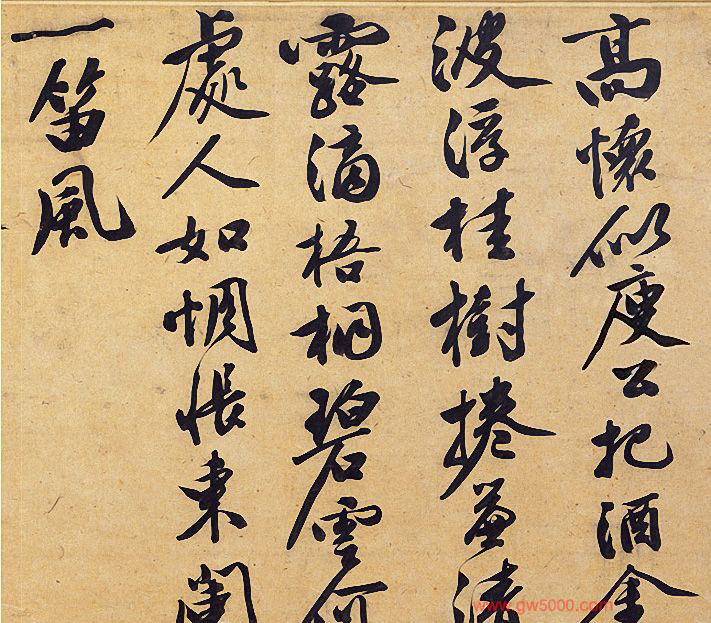 高懷似庾公把酒金
波浮桂樹捲簾清
露滴梧桐碧雲何
處人如惆悵東
一笛風
www.gw5000.com